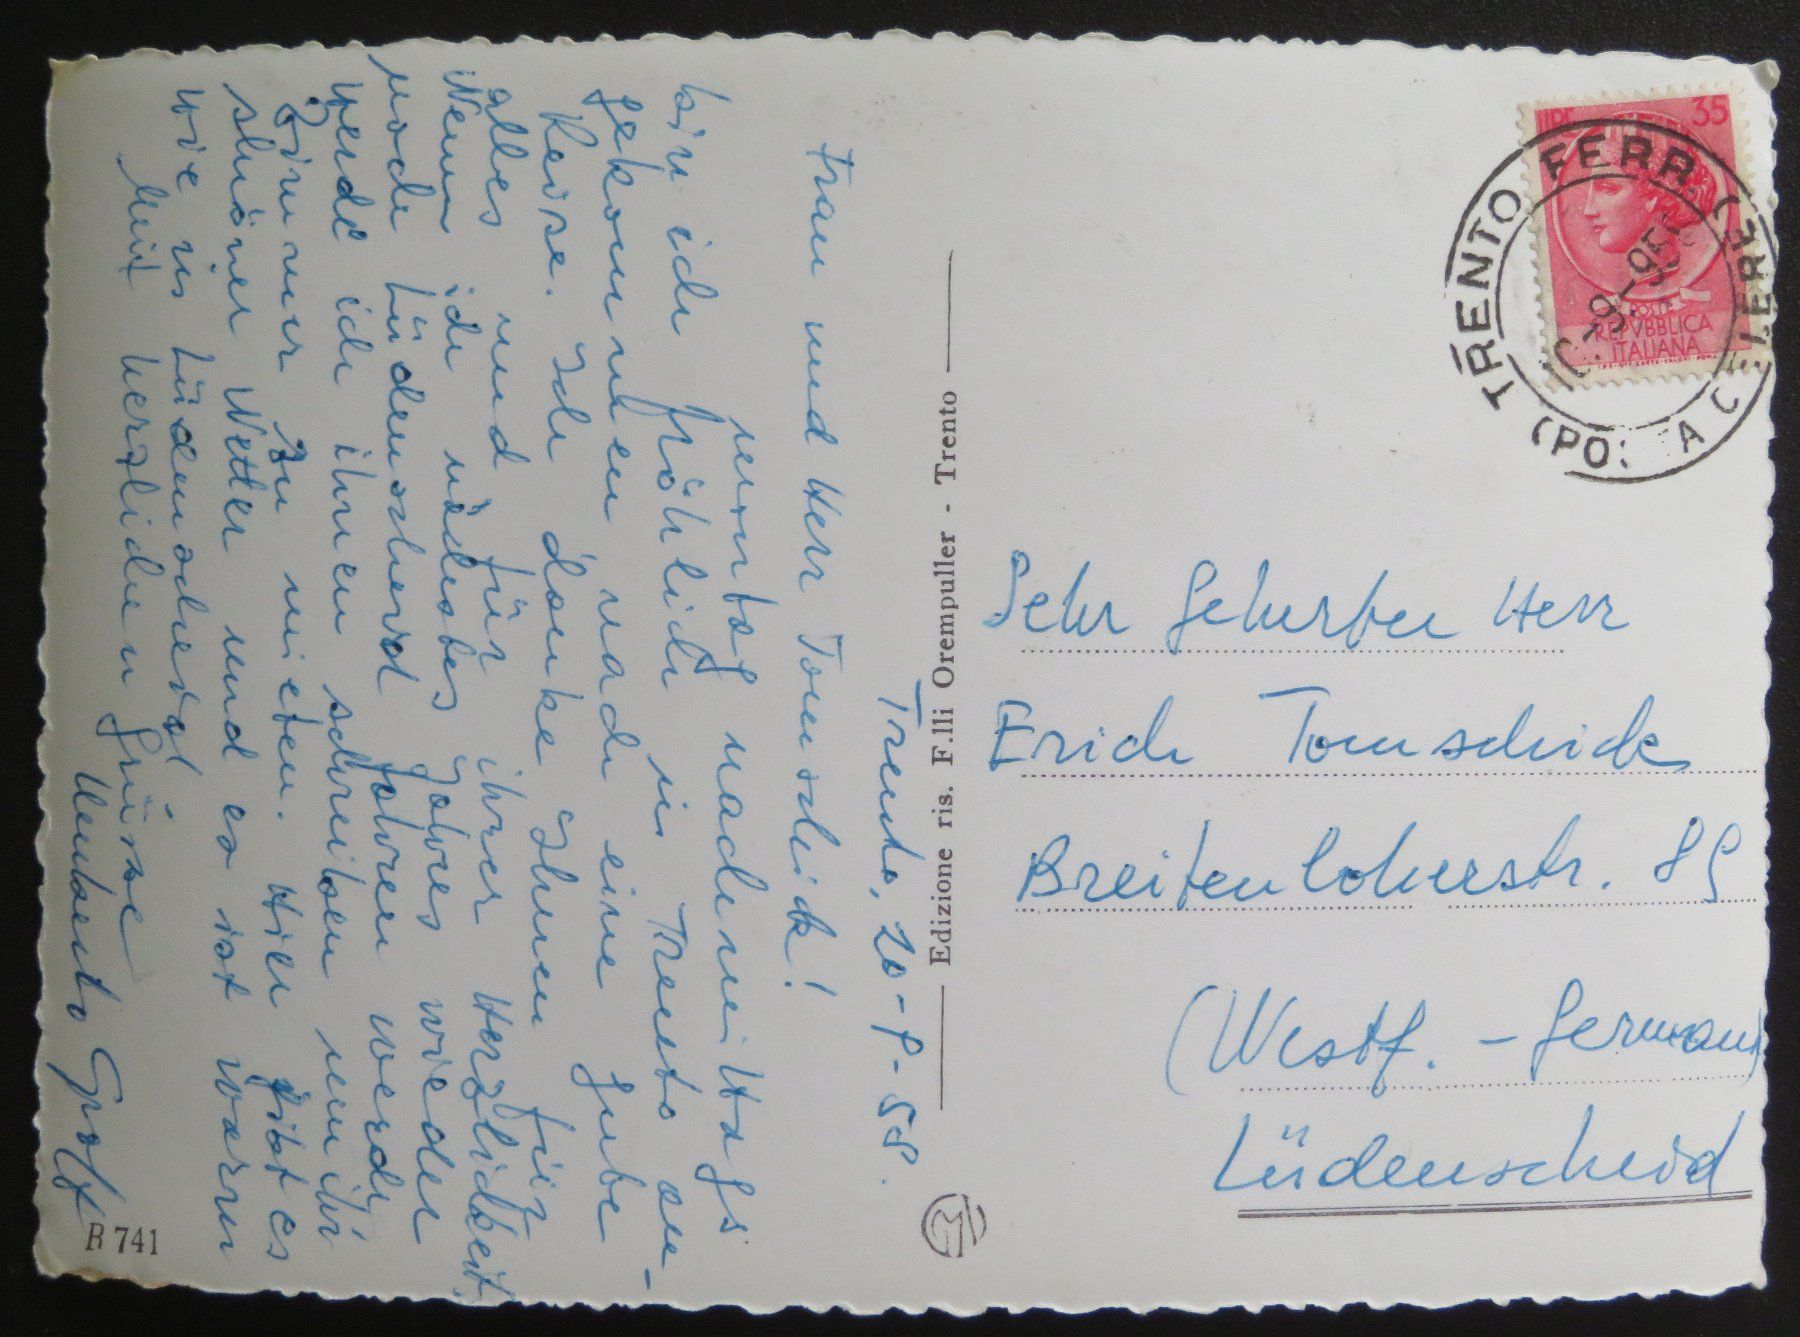 Trento, 20-8-58.
Frau und Herr Tomschick!
montag nachmittags
bin ich fröhlich in Trento an-
gekommen nach eine gute
Reise. Ich danke Ihnen für
alles und für ihrer Herzlichkeit.
Wenn ich nächstes Jahres wieder
nach Lüdenscheid fahren werde
werde ich ihnen schreiben um ihr
Zimmer zu mieten. Hier gibt es
schöner Wetter und es ist warm
wie in Lüdenscheid
Mit herzlichen grüsse
Umberto
B 741
Edizione ris. F.lli Orempuller - Trento
LIRE 35
POSTE
REPVBBLICA
ITALIANA
TRENTO FERR.
Sehr Gehrter Herr
Erich Tomschick
Breitenloherstr. 89
(Westf. - German)
Lüdenscheid